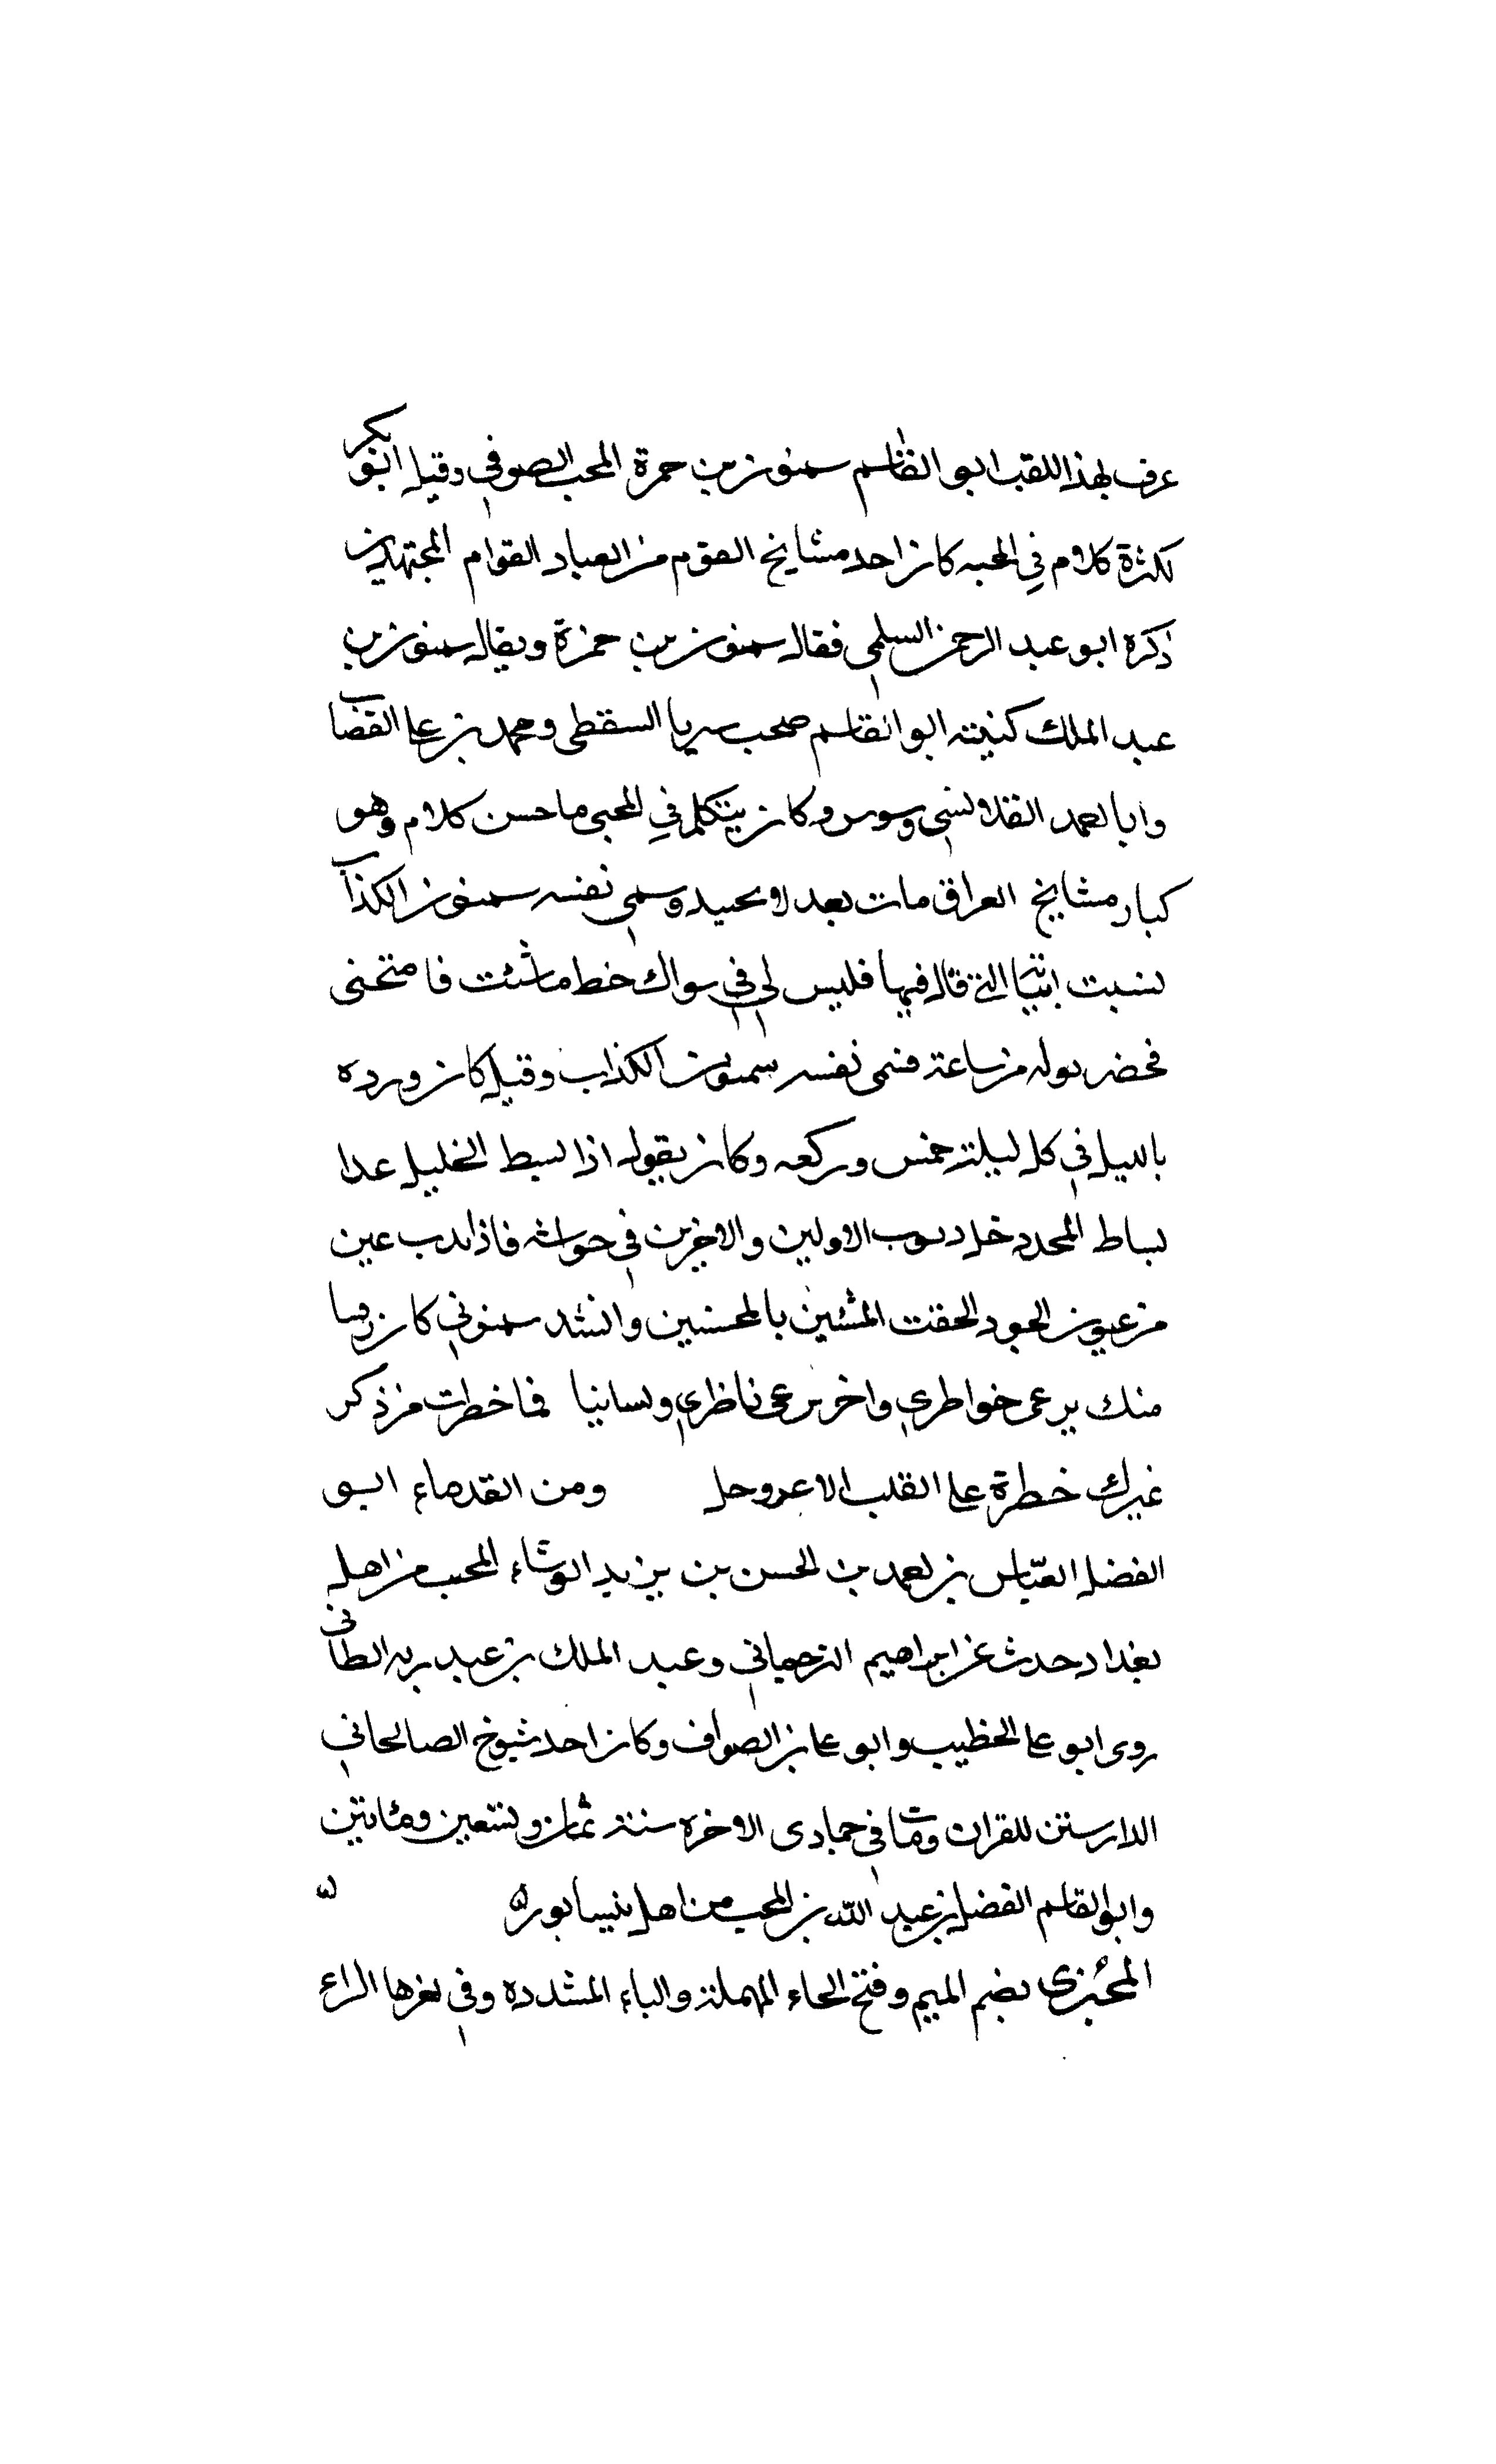 عرف بهذا اللقب ابو القاسم سمنون بن حمزة المحب الصوفي وقيل ابو بكر
لكثرة كلام في المحبه كان احد مشايخ القوم من العباد القوام المجتهدين
ذكره ابو عبد الرحمن السلمي فقال سمنون بن حمزة ويقال سمنون بن
عبد الملك كنيته ابو القاسم صحب سريا السقطي ومحمد بن علي القصاب
وابا احمد القلانسي وسوس وكان يتكلم في المحبى ما حسن كلام وهو
كبار مشايخ العراق مات بعد لا يحيد وسمى نفسه سمنون الكذاب
لسبت التي قال فيها فليس لي في سواك حظ ما شئت فامتحنى
فحضر بوله من ساعة فسمى نفسه سمنون الكذاب وقيل كان ورده
بالليل في كل ليلة خمس وركعه وكان يقول اذا بسط الخليل غدا
بساط المجد دخل ذنوب الاولين والاخرين في حواشه فاذا بدت عين
من عيون الجود الحقت المسئين بالمحسنين وانشد سمنوني كان رقيبا
منك يرعى خواطري واخر يرعى ناظري ولسانيا فما خطرت من ذكر
غيرك خطرة على القلب الا عروحل ومن القدماء ابو
الفضل العباس بن احمد بن الحسن بن يزيد الوشاء المحب من اهل
بغداد حدث عن ابراهيم الترجماني وعبد الملك بن عبد ربه الطائي
روى ابو علي الخطيب وابو علي بن الصواف وكان احد شيوخ الصالحاني
الدارستن للقران ومات في جمادى الاخره سنة ثمان وتسعين ومائتين
وابو القاسم الفضل بن عبد الله بن المحب من اهل نيسابور
المحبري بضم الميم وفتح الحاء المهملة والباء المشدده وفي اخرها الراء